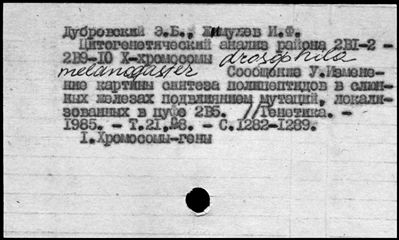 Дубровский Э.Б., Жимулев И.Ф.
Цитогенетический анализ района 2В1-2 -
2В9-10 Х-хромосомы drosophila
melanogaster Сообщение У.Измене-
ние картины синтеза полипептидов в слюн-
ных железах подвлиянием мутаций, локали-
зованных в пуфе 2В5. // Генетика. -
1985. - Т.21,№8. - С.1282-1289.
1.Хромосомы-гены